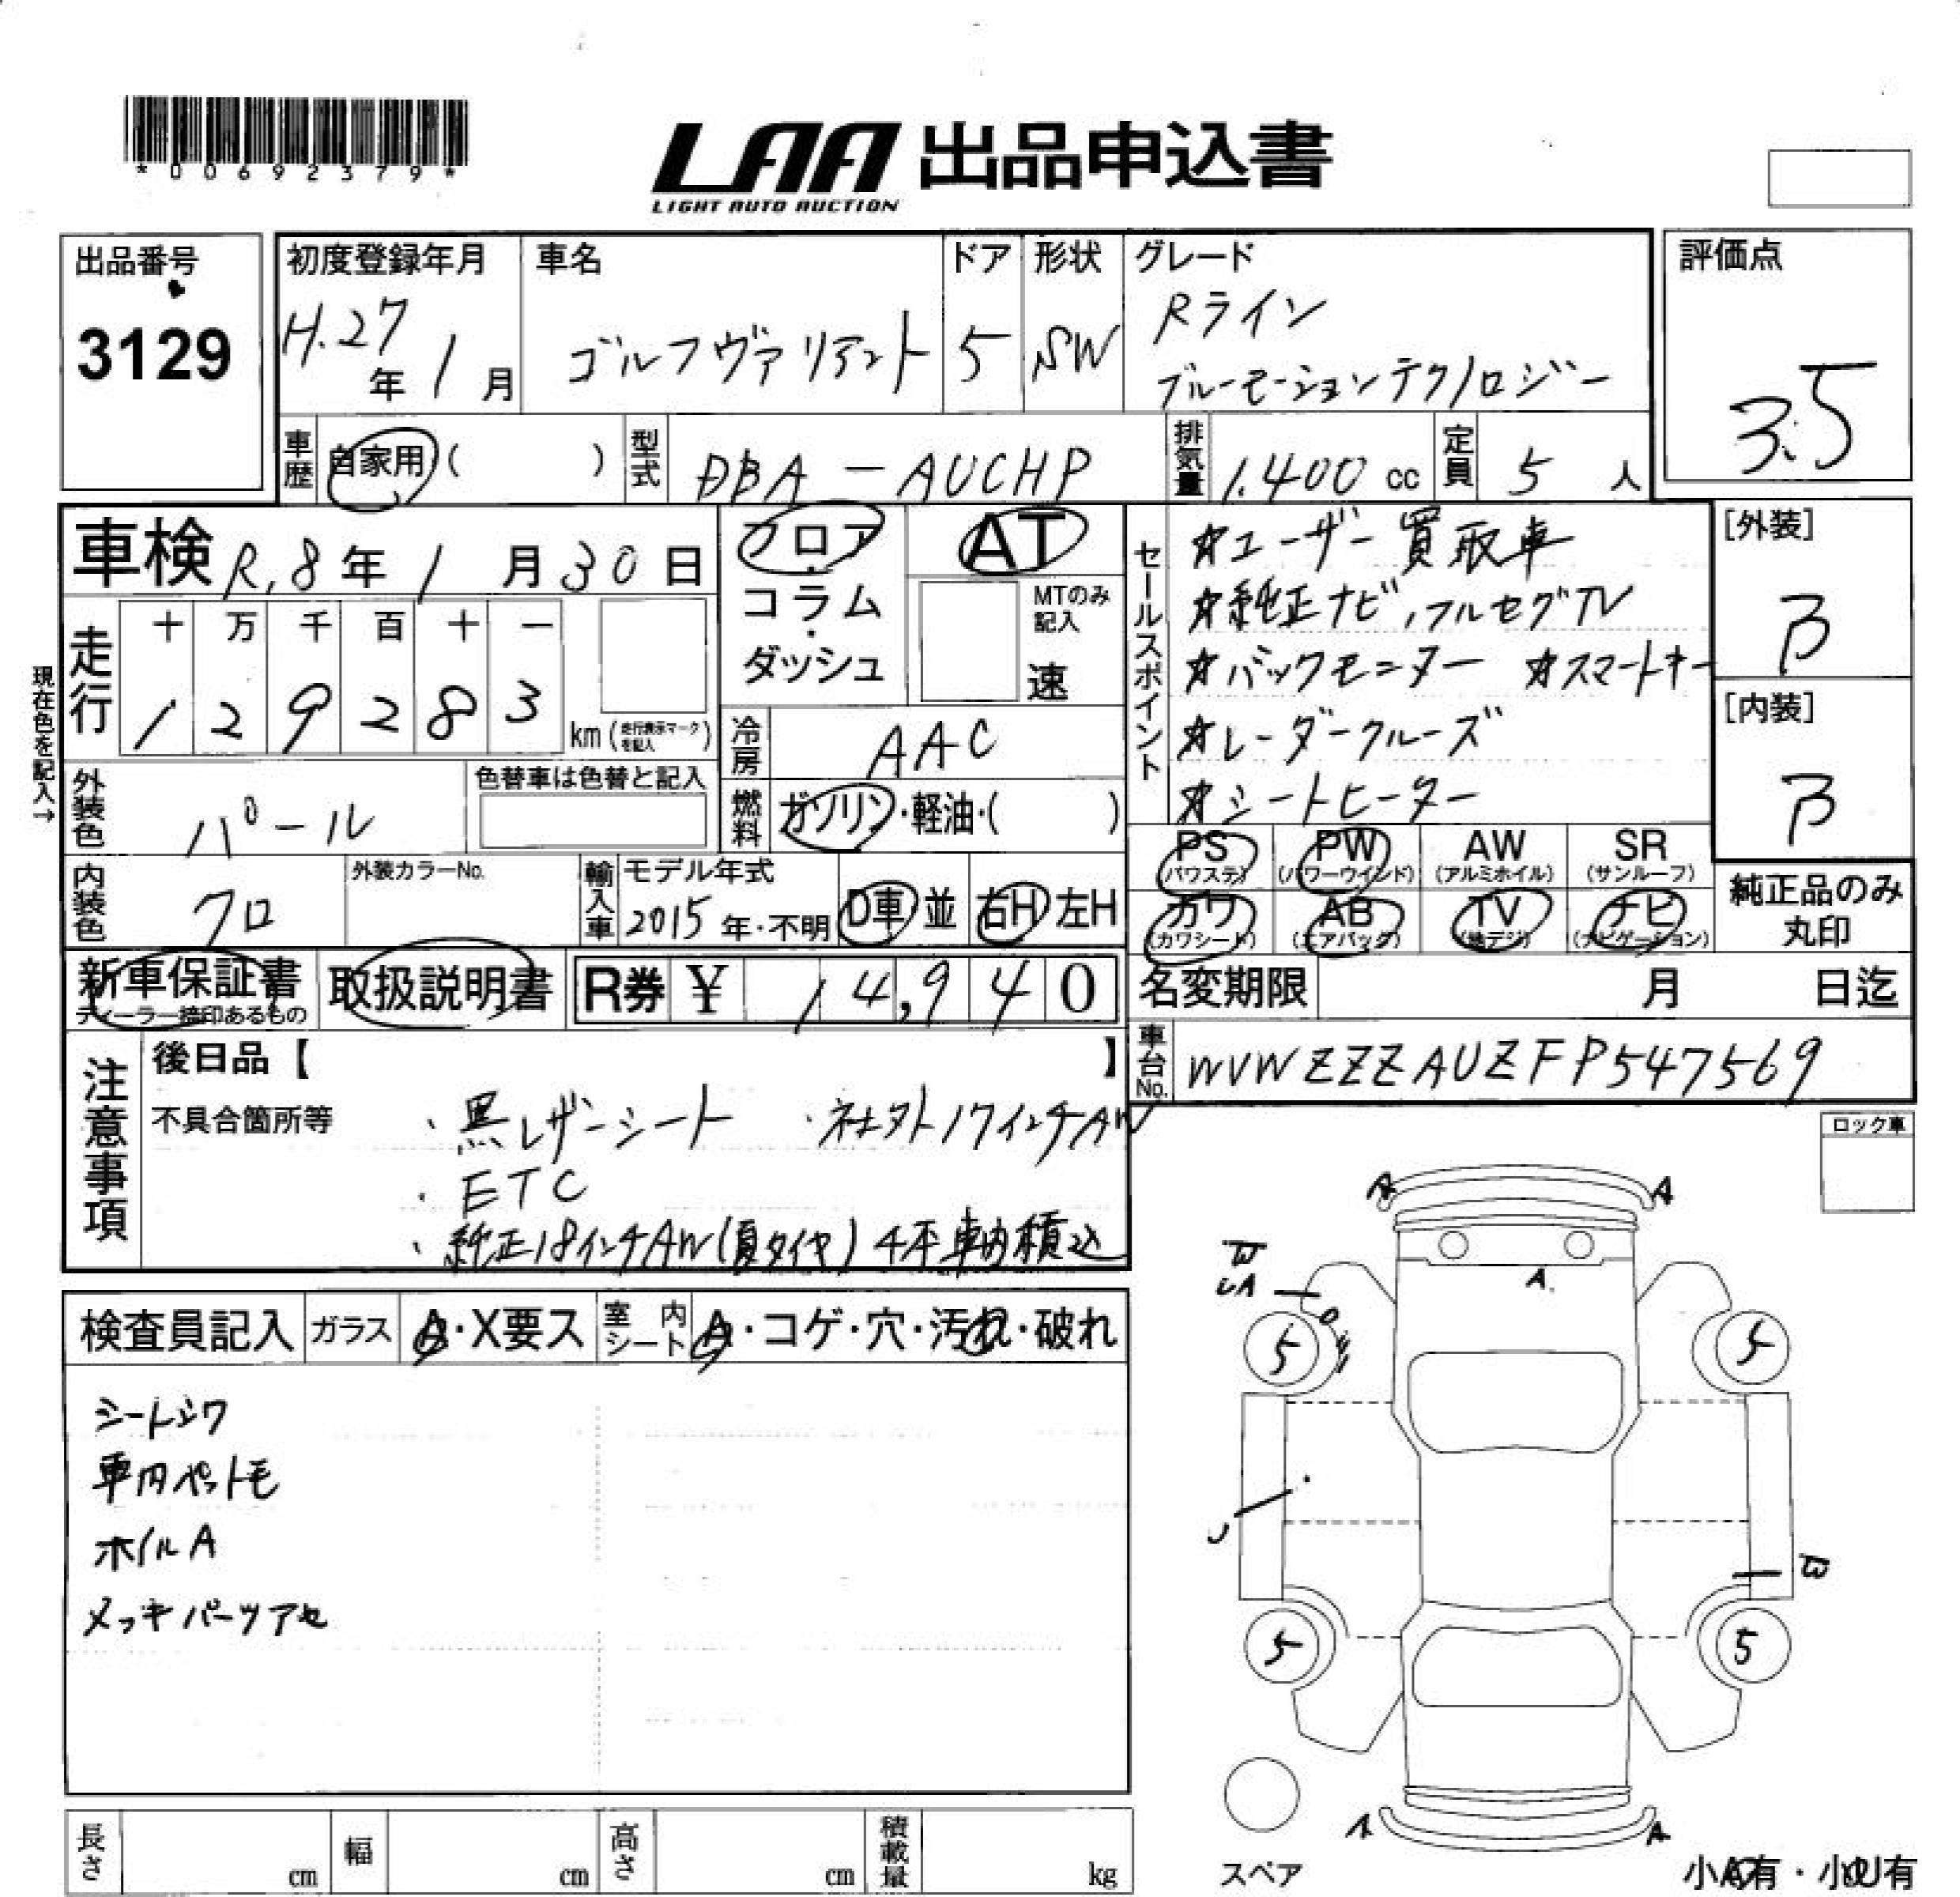 *00692379*
LAA 出品申込書
LIGHT AUTO AUCTION
出品番号
3129
初度登録年月
H.27年 1月
車名
ゴルフヴァリアント
ドア
5
形状
SW
グレード
Rライン
ブルーモーションテクノロジー
評価点
3.5
車歴 自家用 ( )
型式 DBA-AUCHP
排気量 1.400 cc
定員 5 人
車検 R.8年 1月 30日
走行
十 万 千 百 十 一
1 2 9 2 8 3
km (走行表示マークを記入)
現在色を記入→
フロア・コラム・ダッシュ
AT
MTのみ記入
速
冷房 AAC
燃料 ガソリン・軽油・( )
外装色 パール
色替車は色替と記入
内装色 クロ
外装カラーNo.
輸入車 モデル年式
2015年・不明
D車 並
右H 左H
セールスポイント
☆ユーザー買取車
☆純正ナビ,フルセグTV
☆バックモニター ☆スマートキー
☆レーダークルーズ
☆シートヒーター
[外装]
B
[内装]
B
PS (パワステ)
PW (パワーウインド)
AW (アルミホイル)
SR (サンルーフ)
カワ (カワシート)
AB (エアバッグ)
TV (地デジ)
ナビ (ナビゲーション)
純正品のみ丸印
新車保証書
ディーラー捺印あるもの
取扱説明書
R券 ¥ 14,940
名変期限 月 日迄
車台No. WVWZZZAUZFP547569
注意事項
後日品【 】
不具合箇所等
・黒レザーシート ・社外17インチAW
・ETC
・純正18インチAW(夏タイヤ)4本車内積込
ロック車
検査員記入
ガラス A・X要ス
室内シート A・コゲ・穴・汚れ・破れ
シートシワ
車内ペット毛
ホイルA
メッキパーツアセ
A A
W
UA
A
5 5
U
W
5 5
A A
スペア
小A有・小U有
長さ cm
幅 cm
高さ cm
積載量 kg